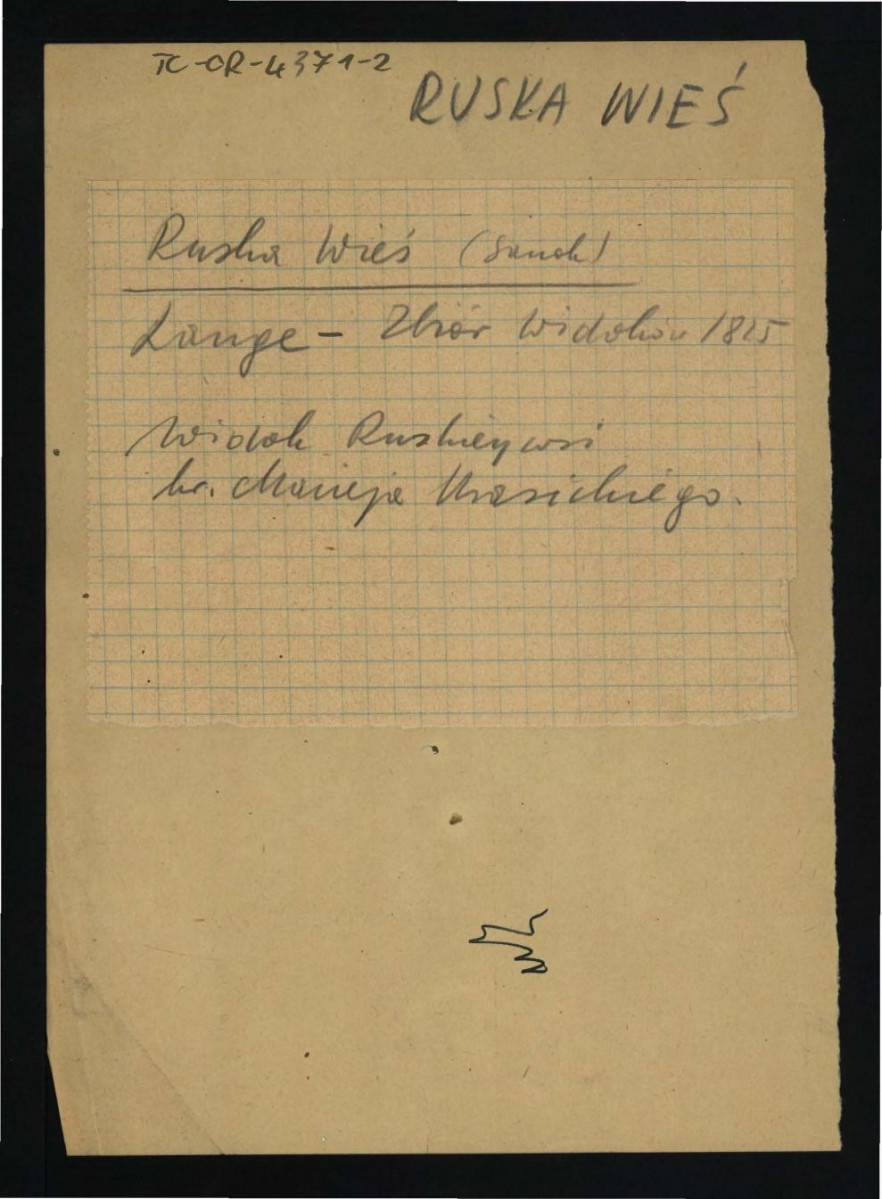 TC-OR-4371-2
RUSKA WIEŚ
Ruska Wieś (Sanok)
Lange - Zbiór Widoków 1825
Widok Ruskiey wsi
hr. Macieja Krasickiego.